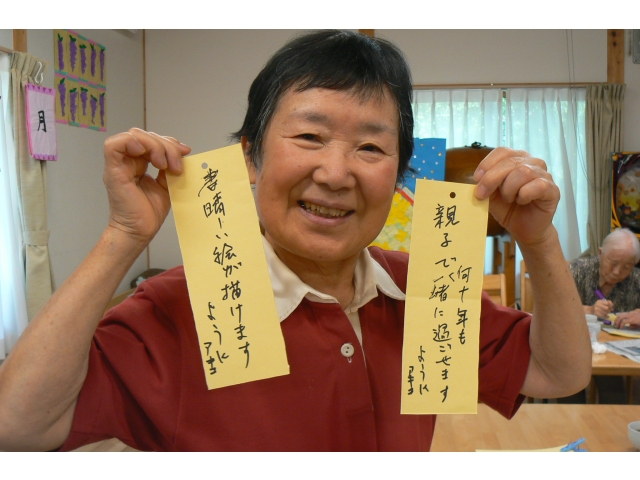 月
素晴しい絵が描けます
ように
アキ
何十年も
親子で一緒に過ごせます
ように
アキ